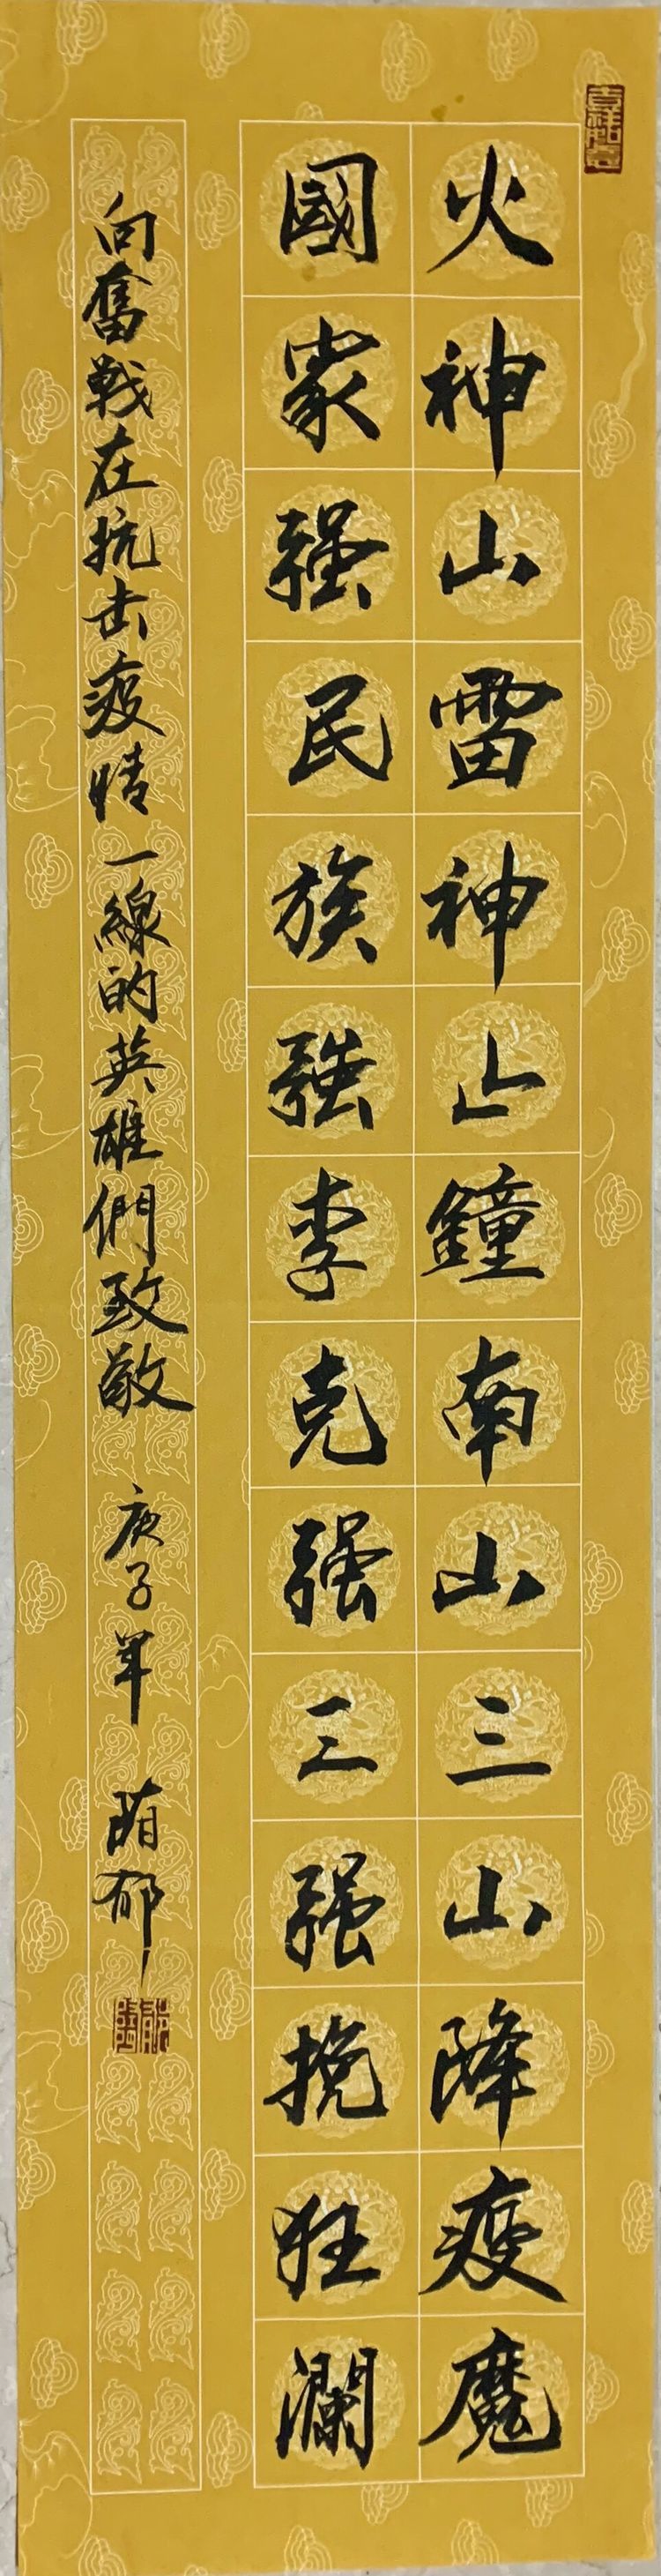 吉祥如意
火神山雷神山鐘南山三山降疫魔
國家强民族強李克强三强挽狂瀾
向奮戰在抗击疫情一線的英雄們致敬
庚子年 荫郁